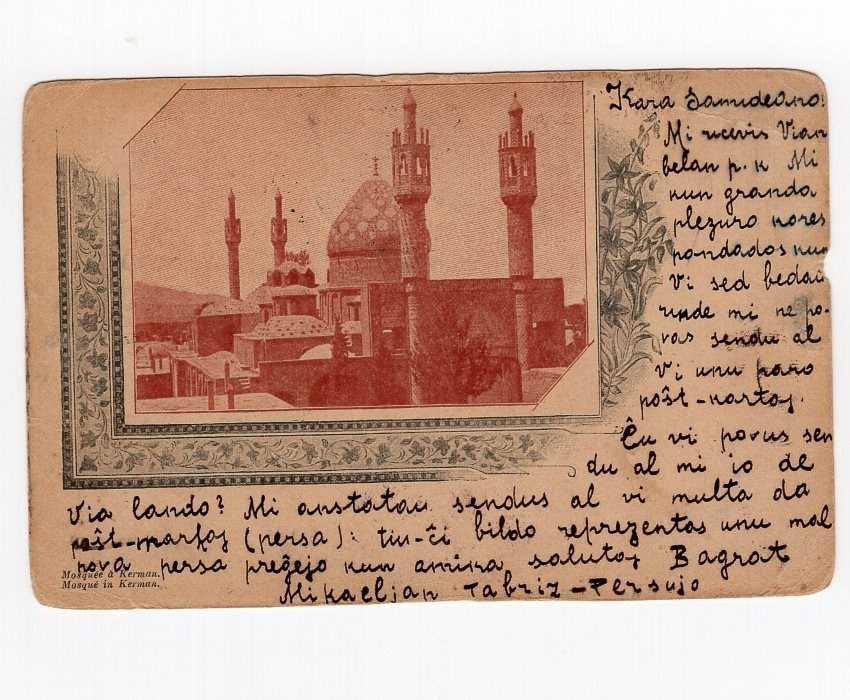 Kara Samideano!
Mi ricevis Vian
belan p. k Mi
kun granda
plezuro kores
pondados kun
Vi sed bedaŭ
rinde mi ne po-
vas sendu al
Vi unu paro
poŝt-kartoj.
Ĉu vi povus sen
du al mi io de
Via lando? Mi anstataŭ sendus al vi multa da
poŝt-markoj (persa): tiu-ĉi bildo reprezentas unu mal
nova persa preĝejo kun amika salutoj Bagrat
Mikaeljan Tabriz-Persujo
Mosquée à Kerman.
Mosque in Kerman.